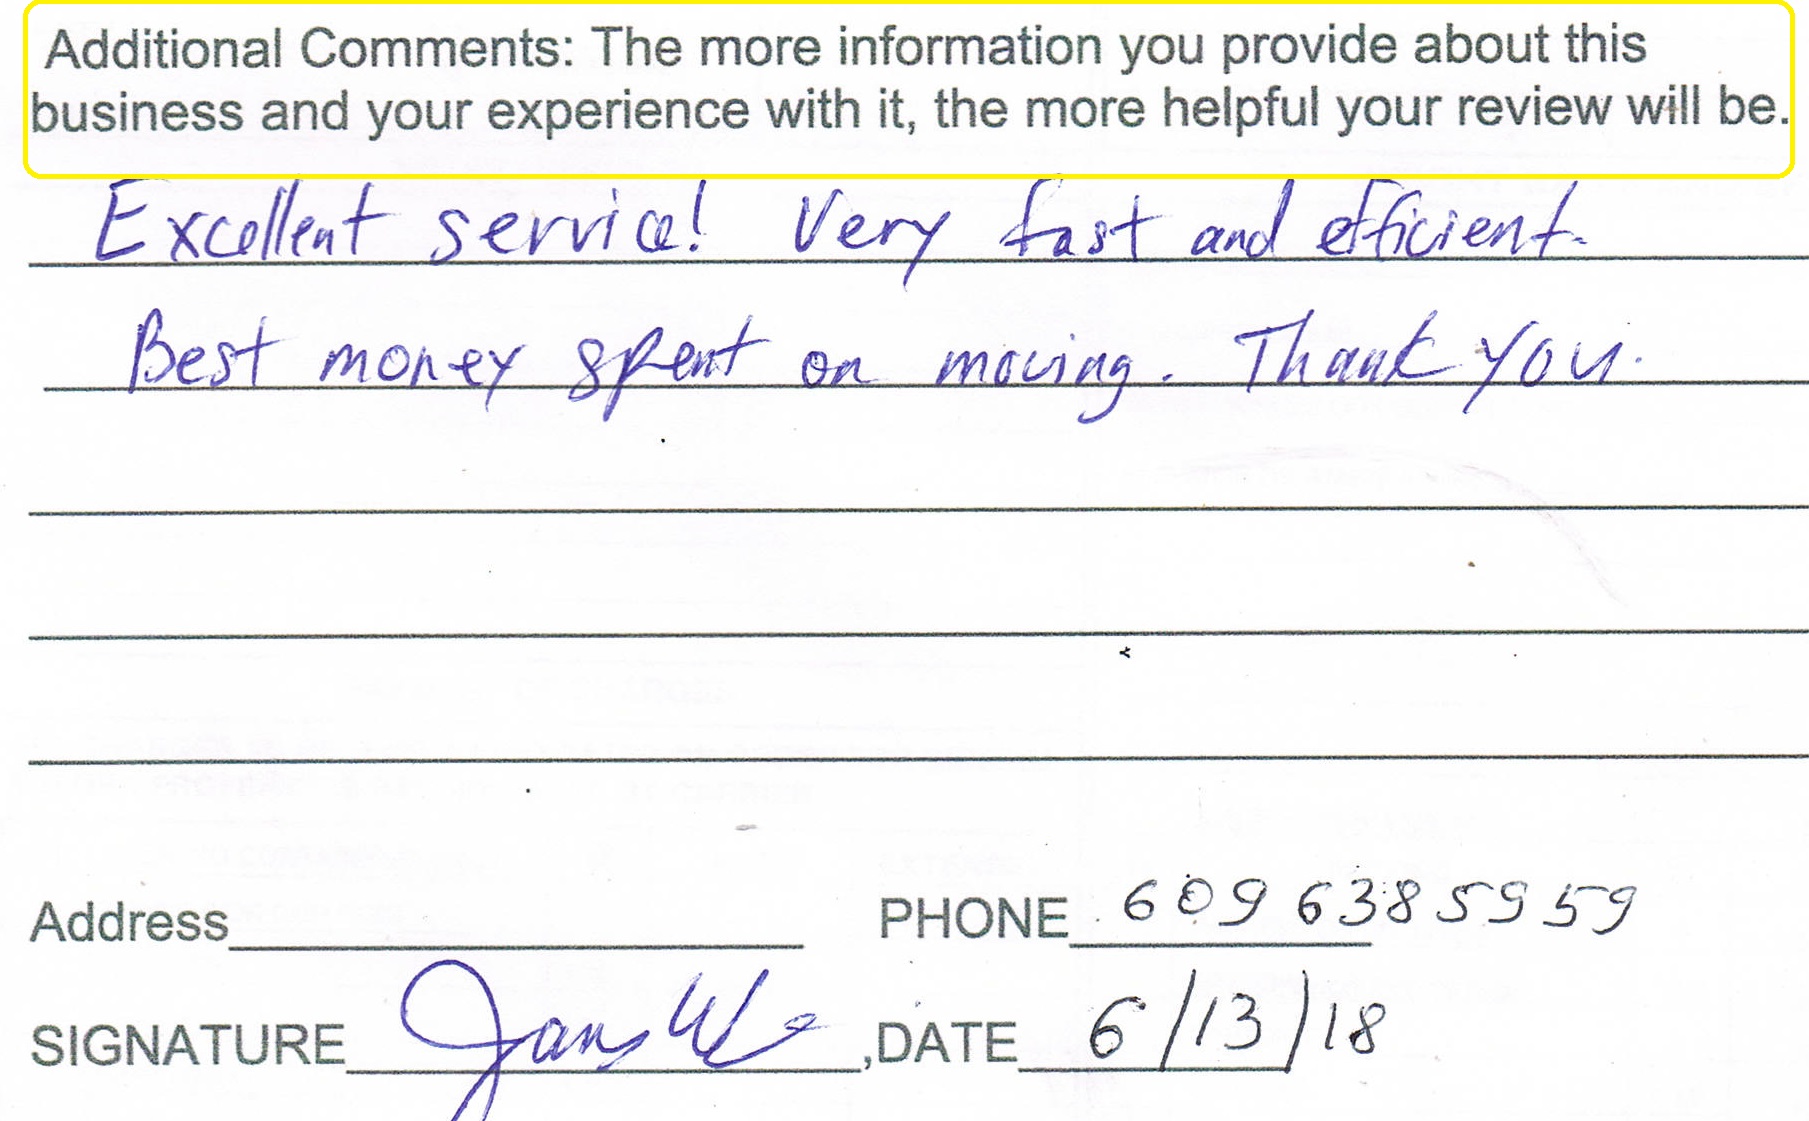 Additional Comments: The more information you provide about this
business and your experience with it, the more helpful your review will be.
Excellent service! Very fast and efficient.
Best money spent on moving. Thank you.
Address PHONE 609 638 5959
SIGNATURE ,DATE 6/13/18